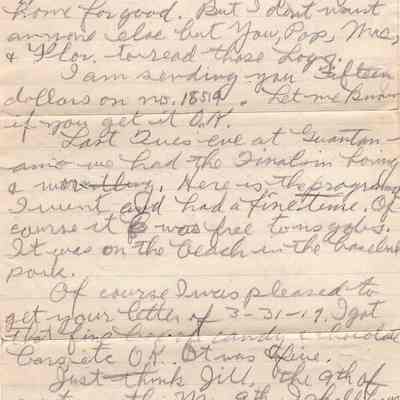 home for good. But I don't want
anyone else but You, Pop, Mac,
& Flor. to read those Logs.
I am sending you Fifteen
dollars on no. 18519. Let me know
if you get it O.K.
Last Tues eve at Guantan-
amo we had the Finalism boxing
&. Here is the programme
I went and had a fine time. Of
course it was free to us gobs.
It was on the beach in the baseball
park.
Of course I was pleased to
get your letter of 3-31-19. I got
that fine candy & chocolate
bars etc O.K. It was fine.
Just think Jill, the 9th of